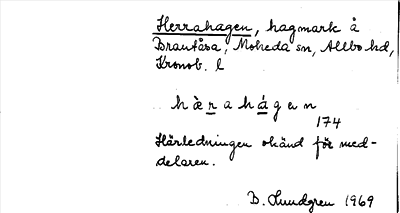 Herrahagen, hagmark å
Brantåsa, Moheda sn, Allbo hd,
Kronob. l
hèrahágen
174
Härledningen okänd för med-
delaren.
B. Lundgren 1969